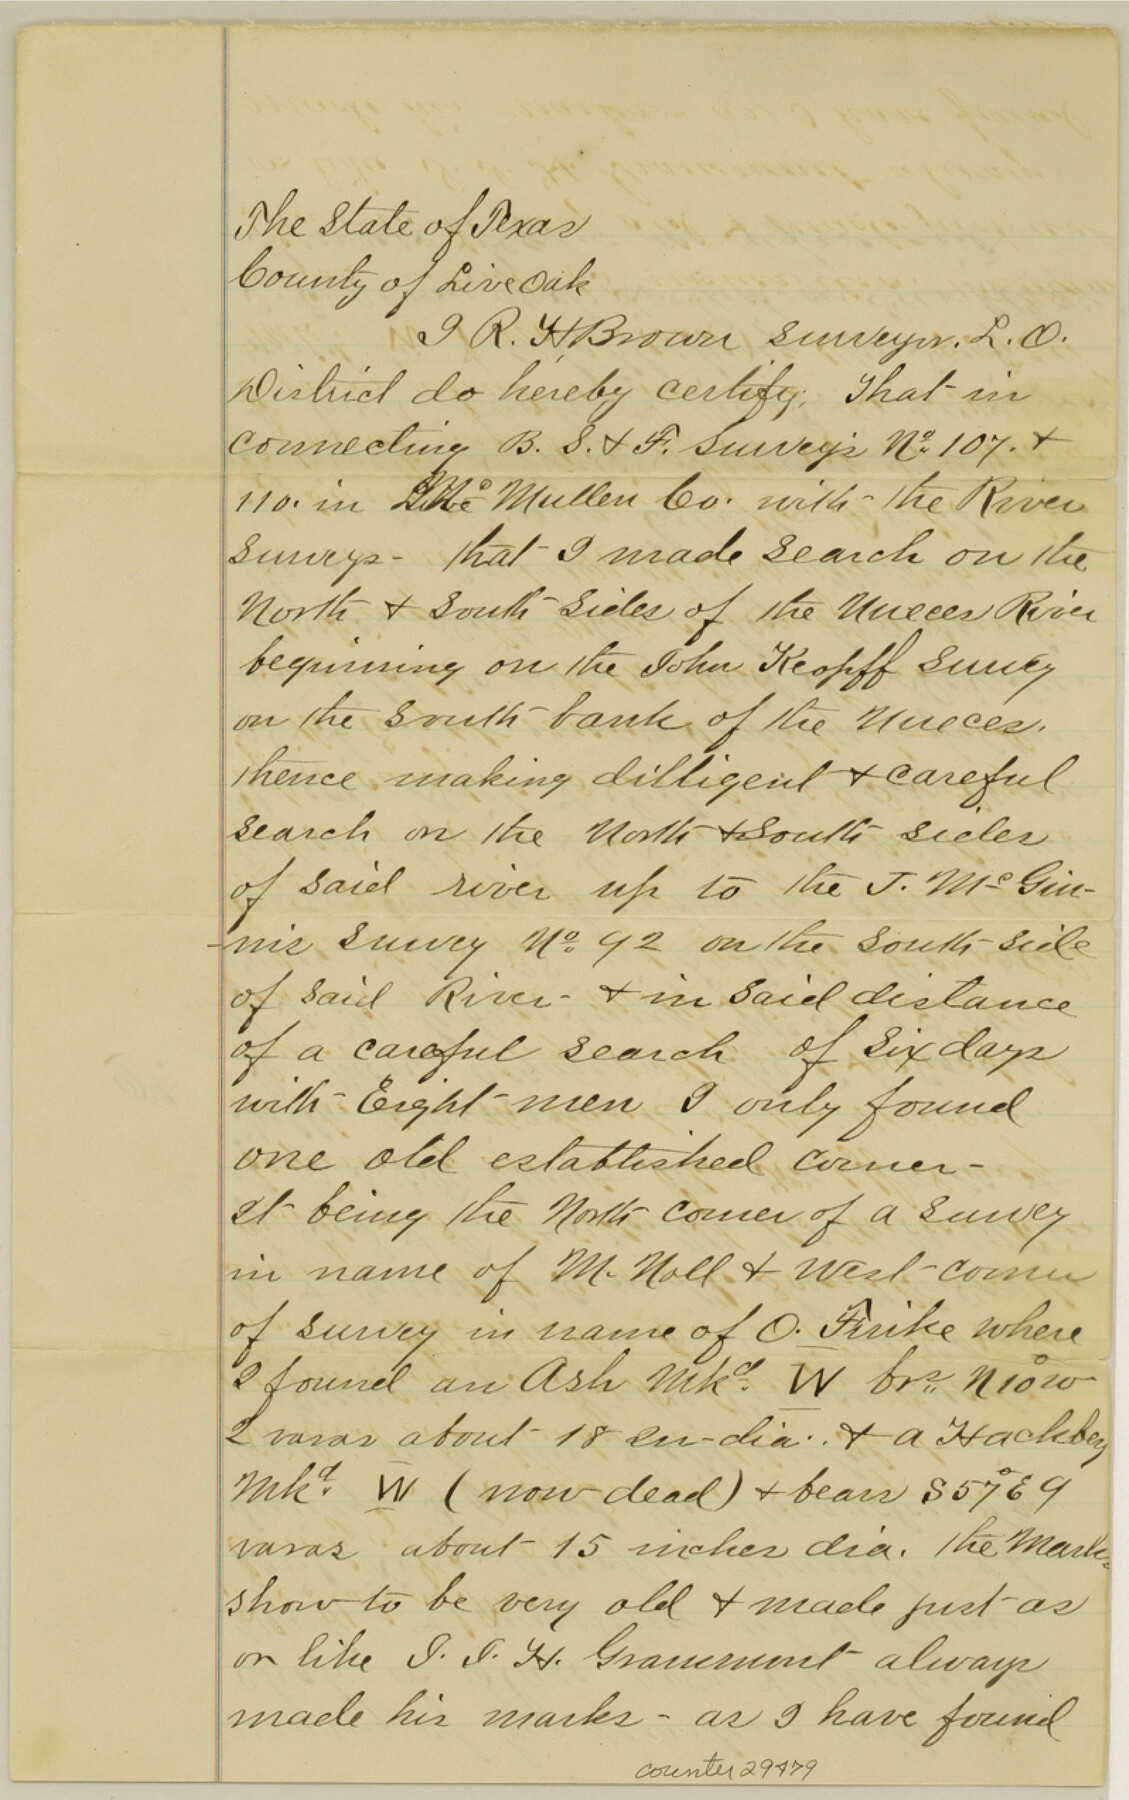 The State of Texas
County of Live Oak
I R. H. Brown Surveyor. L. O.
District do hereby certify, That in
connecting B. S. & F. Surveys No. 107. &
110. in Mc Mullen Co. with the River
Surveys - that I made search on the
North & South Sides of the Nueces River
beginning on the John Keopff Survey
on the South bank of the Nueces.
thence making dilligent & careful
search on the North & South sides
of said river up to the J. Mc Gin-
-nis Survey No. 92 on the South side
of said River - & in said distance
of a careful search of Six days
with Eight men I only found
one old established corner -
It being the North corner of a Survey
in name of M. Noll & West corner
of survey in name of O. where
I found an Ash Mkd. W brs. N 10° W
2 varas about 18 in dia. & a Hackbery
Mkd. W (now dead) & bears S 57° E 9
varas about 15 inches dia. the Marks
show to be very old & made just as
or like J. J. H. always
made his marks - as I have found
counter 29479